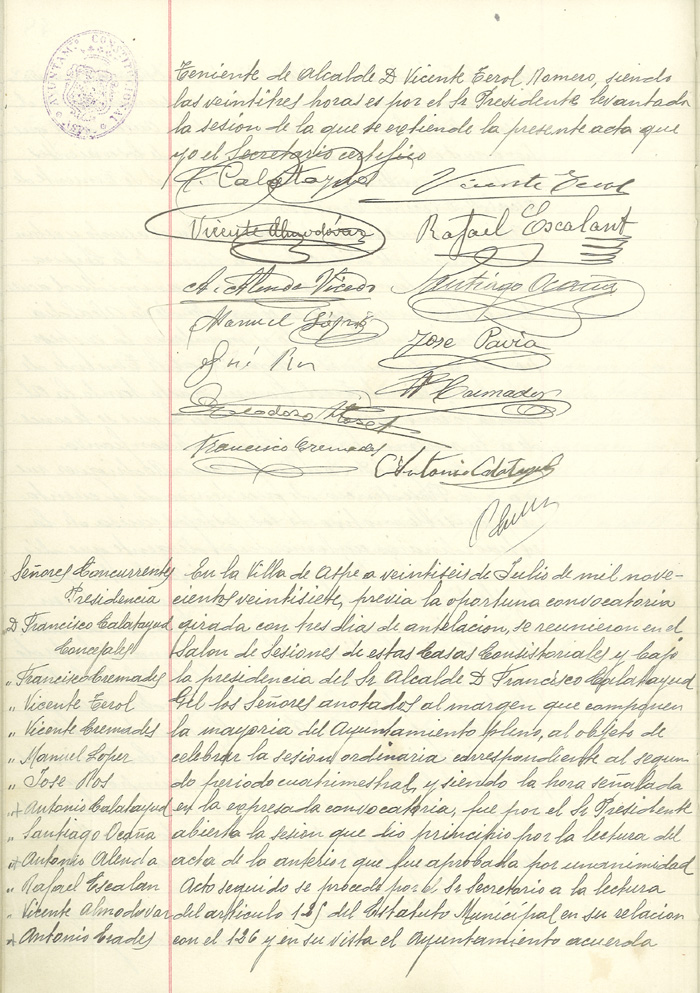 AYUNTAM. CONSTITUCIONAL
Teniente de Alcalde D Vicente Terol Romero, siendo
las veintitres horas es por el Sr Presidente levantada
la sesion de la que se extiende la presente acta que
yo el Secretario certifico
F. Calatayud Vicente Terol
Vicente Almodóvar Rafael Escalant
A. Alenda Vicedo Santiago Ocaña
Manuel López
Jose Pavia
José Ros
Cremades
Teodoro
Francisco Cremades
Antonio Calatayud
Señores Concurrentes
Presidencia
D Francisco Calatayud
Concejales
" Francisco Cremades
" Vicente Terol
" Vicente Cremades
" Manuel Lopez
" Jose Ros
" Antonio Calatayud
" Santiago Ocaña
" Antonio Alenda
" Rafael Escalan
" Vicente Almodovar
" Antonio Erades
En la Villa de Aspe a veintiseis de Julio de mil nove-
cientos veintisiete, previa la oportuna convocatoria
girada con tres dias de antelacion, se reunieron en el
Salon de Sesiones de estas Casas Consistoriales y bajo
la presidencia del Sr Alcalde D Francisco Calatayud
Gil los Señores anotados al margen que componen
la mayoria del Ayuntamiento pleno, al objeto de
celebrar la sesion ordinaria correspondiente al segun
do periodo cuatrimestral, y siendo la hora señalada
en la expresada convocatoria, fue por el Sr Presidente
abierta la sesion que dio principio por la lectura del
acta de la anterior que fue aprobada por unanimidad
Acto seguido se procede por el Sr Secretario a la lectura
del articulo 125 del Estatuto Municipal en su relacion
con el 126 y en su vista el Ayuntamiento acuerda